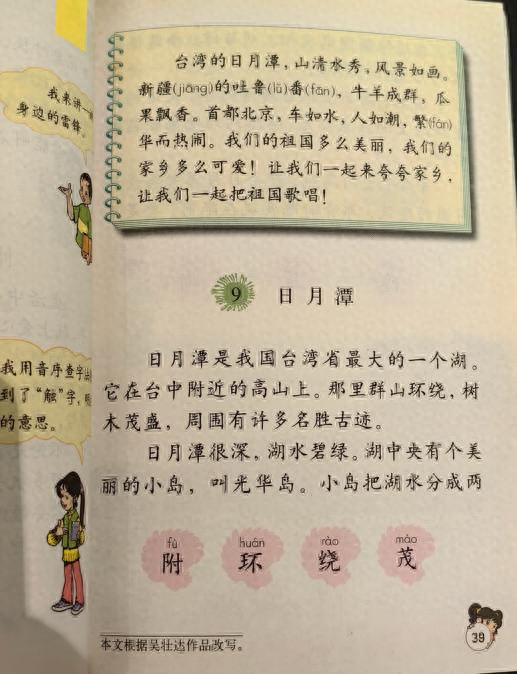 我来讲一
身边的雷锋。
我用音序查字
到了“触”字,
的意思。
台湾的日月潭,山清水秀,风景如画。
新疆(jiāng)的吐鲁(lǔ)番(fān),牛羊成群,瓜
果飘香。首都北京,车如水,人如潮,繁(fán)
华而热闹。我们的祖国多么美丽,我们的
家乡多么可爱!让我们一起来夸夸家乡,
让我们一起把祖国歌唱!
9 日月潭
日月潭是我国台湾省最大的一个湖。
它在台中附近的高山上。那里群山环绕,树
木茂盛,周围有许多名胜古迹。
日月潭很深,湖水碧绿。湖中央有个美
丽的小岛,叫光华岛。小岛把湖水分成两
fù huán rào mào
附 环 绕 茂
本文根据吴壮达作品改写。
39